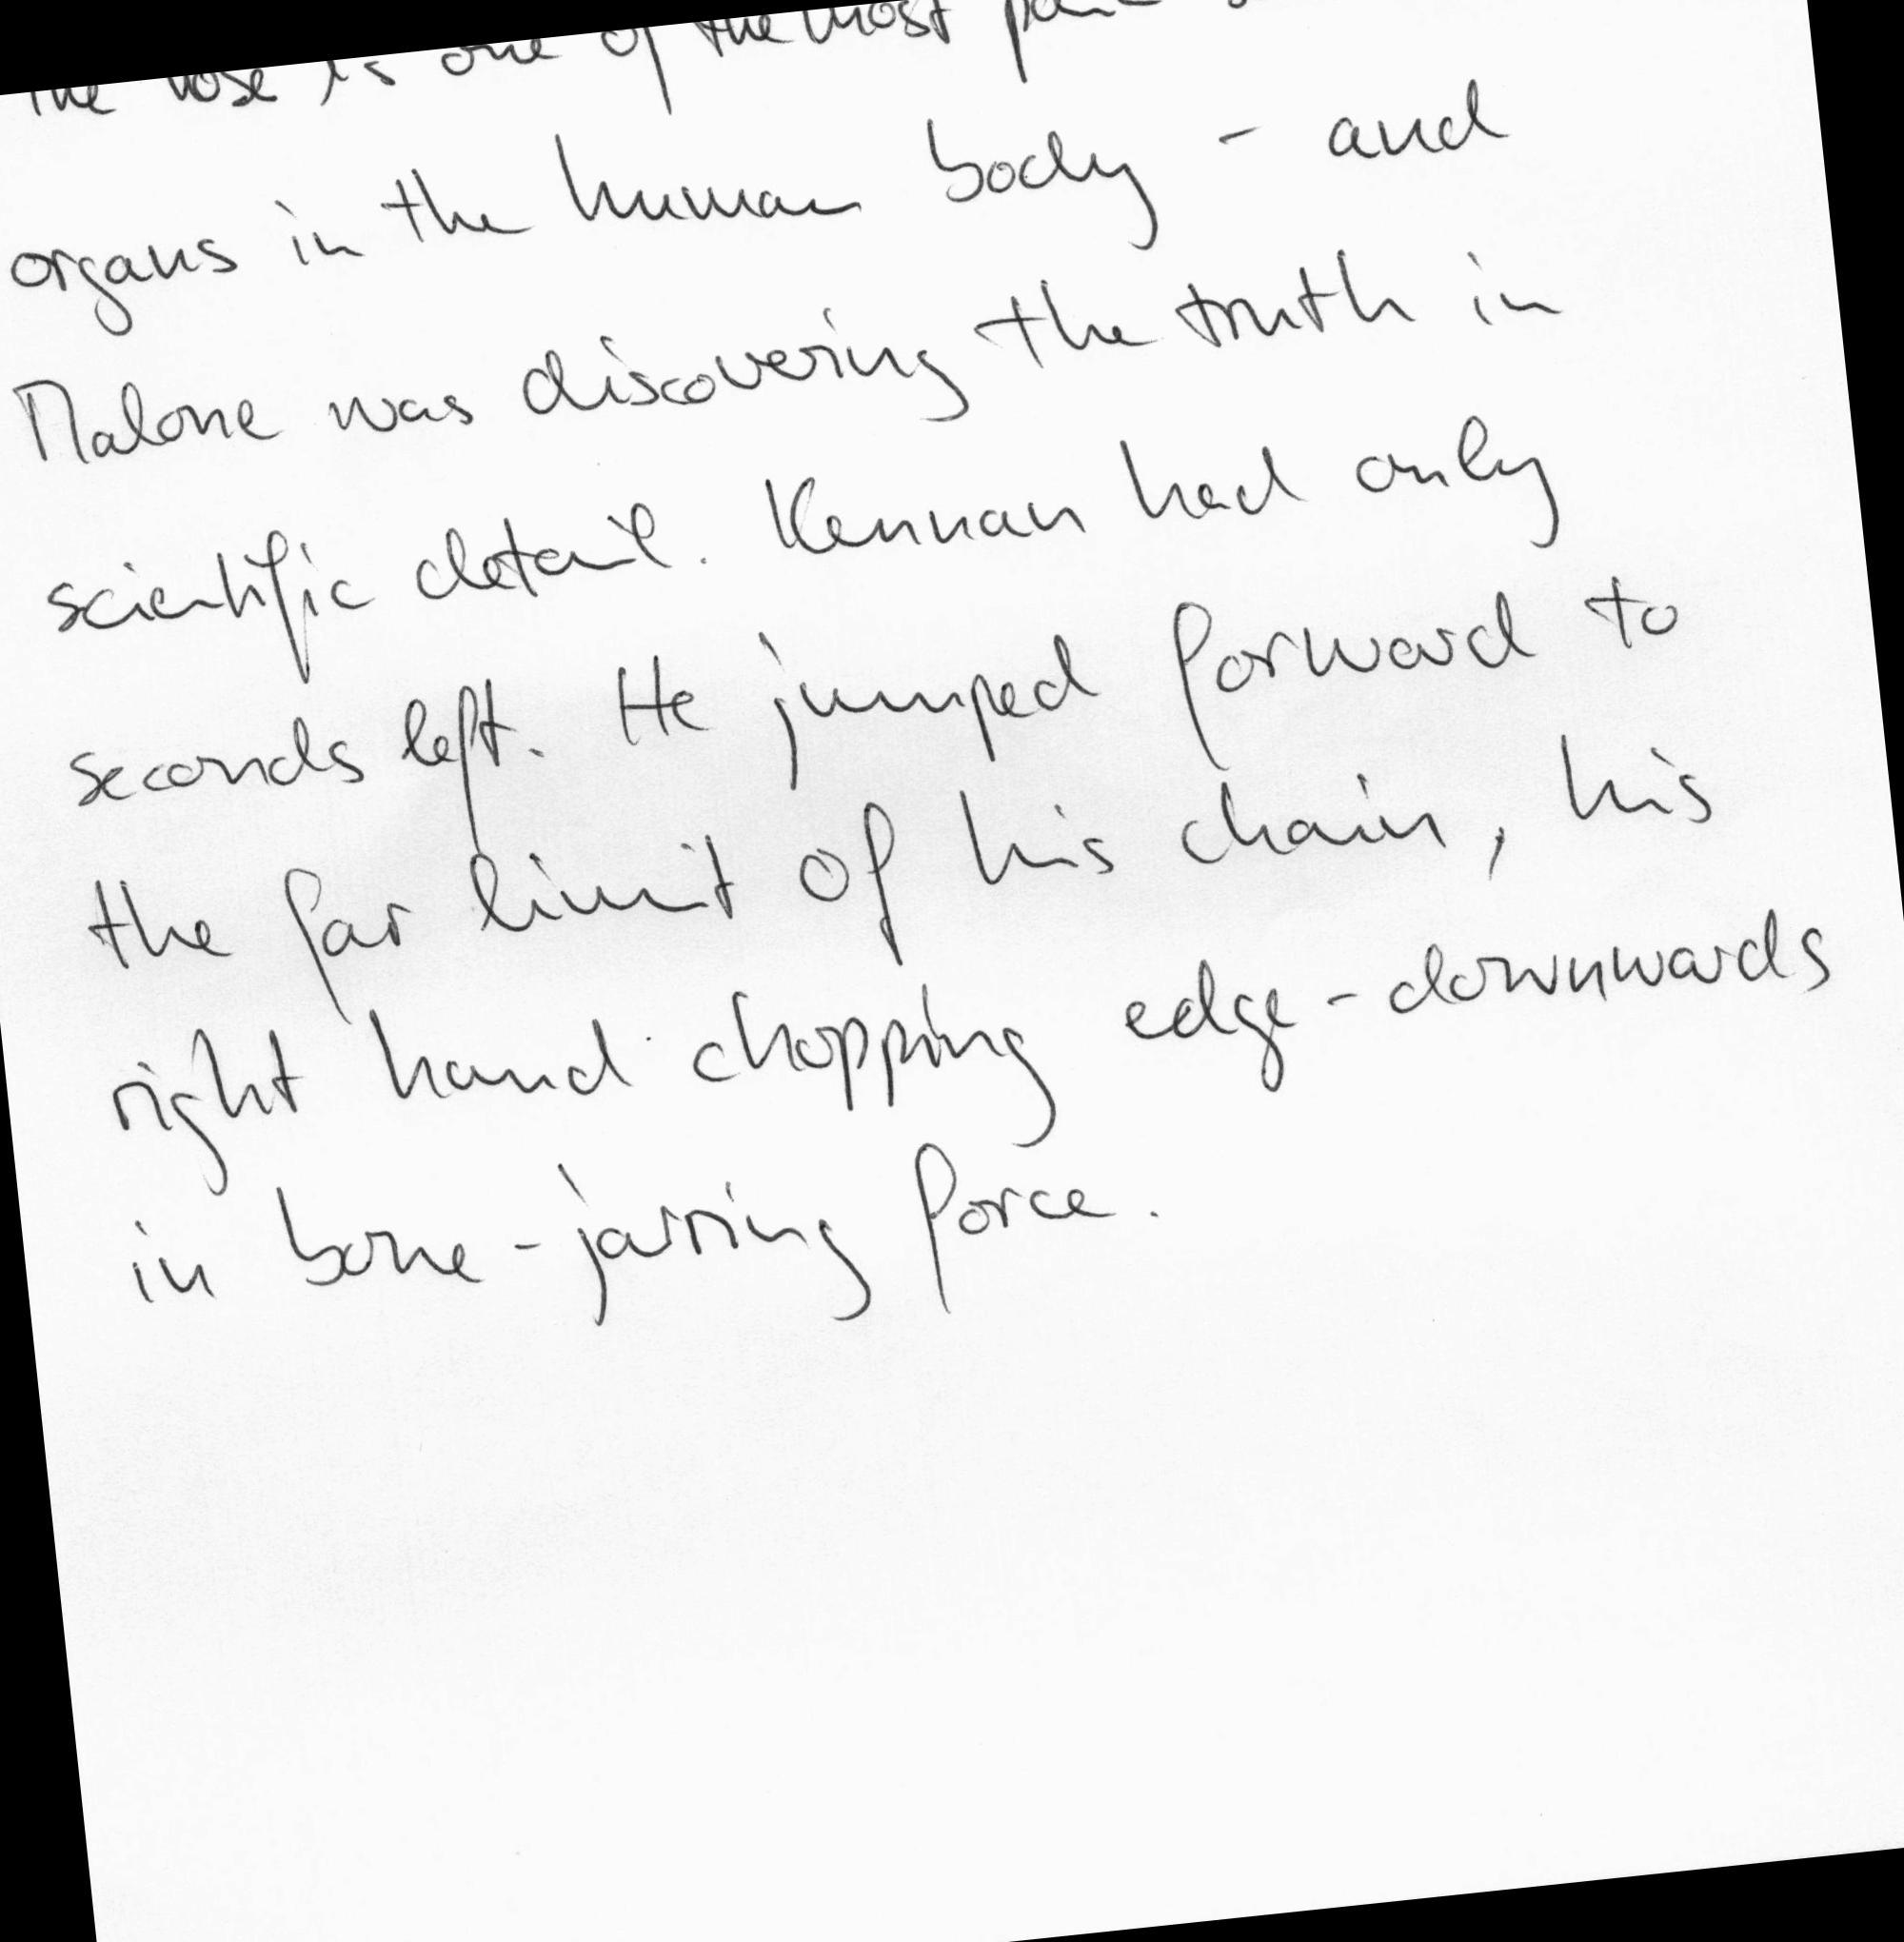 the nose is one of the most
organs in the human body - and
Malone was discovering the truth in
scientific detail. Kennan had only
seconds left. He jumped forward to
the far limit of his chain, his
right hand chopping edge-downwards
in bone-jarring force.